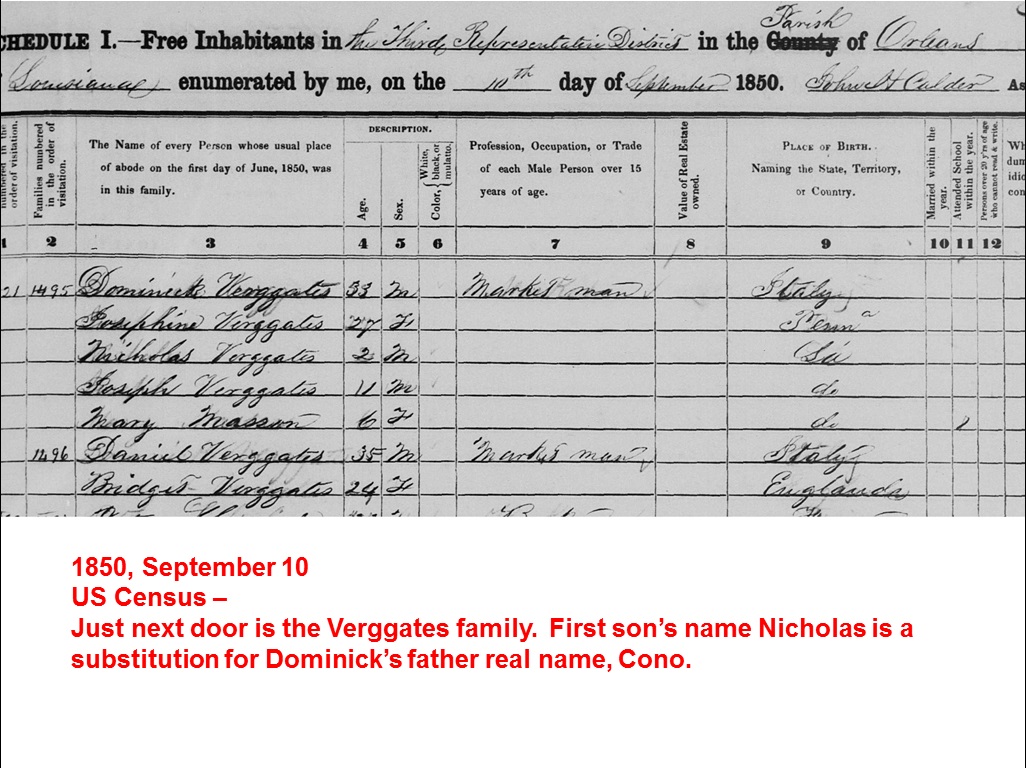 CHEDULE I.—Free Inhabitants in the Third Representative District in the County Parish of Orleans
Louisiana enumerated by me, on the 10th day of September 1850. As
numbered in the order of visitation.
Families numbered in the order of visitation.
The Name of every Person whose usual place of abode on the first day of June, 1850, was in this family.
DESCRIPTION.
Age.
Sex.
Color, { White, black, or mulatto.
Profession, Occupation, or Trade of each Male Person over 15 years of age.
Value of Real Estate owned.
PLACE OF BIRTH. Naming the State, Territory, or Country.
Married within the year.
Attended School within the year.
Persons over 20 y'rs of age who cannot read & write.
1 2 3 4 5 6 7 8 9 10 11 12
21 1495 Dominick Verggates 33 M Market man Italy
Josephine Verggates 27 F Penna
Nicholas Verggates 2 M La
Joseph Verggates 11 M do
Mary Masson 6 F do
1496 Daniel Verggates 35 M Market man Italy
Bridget Verggates 24 F England
1850, September 10
US Census –
Just next door is the Verggates family. First son's name Nicholas is a
substitution for Dominick's father real name, Cono.